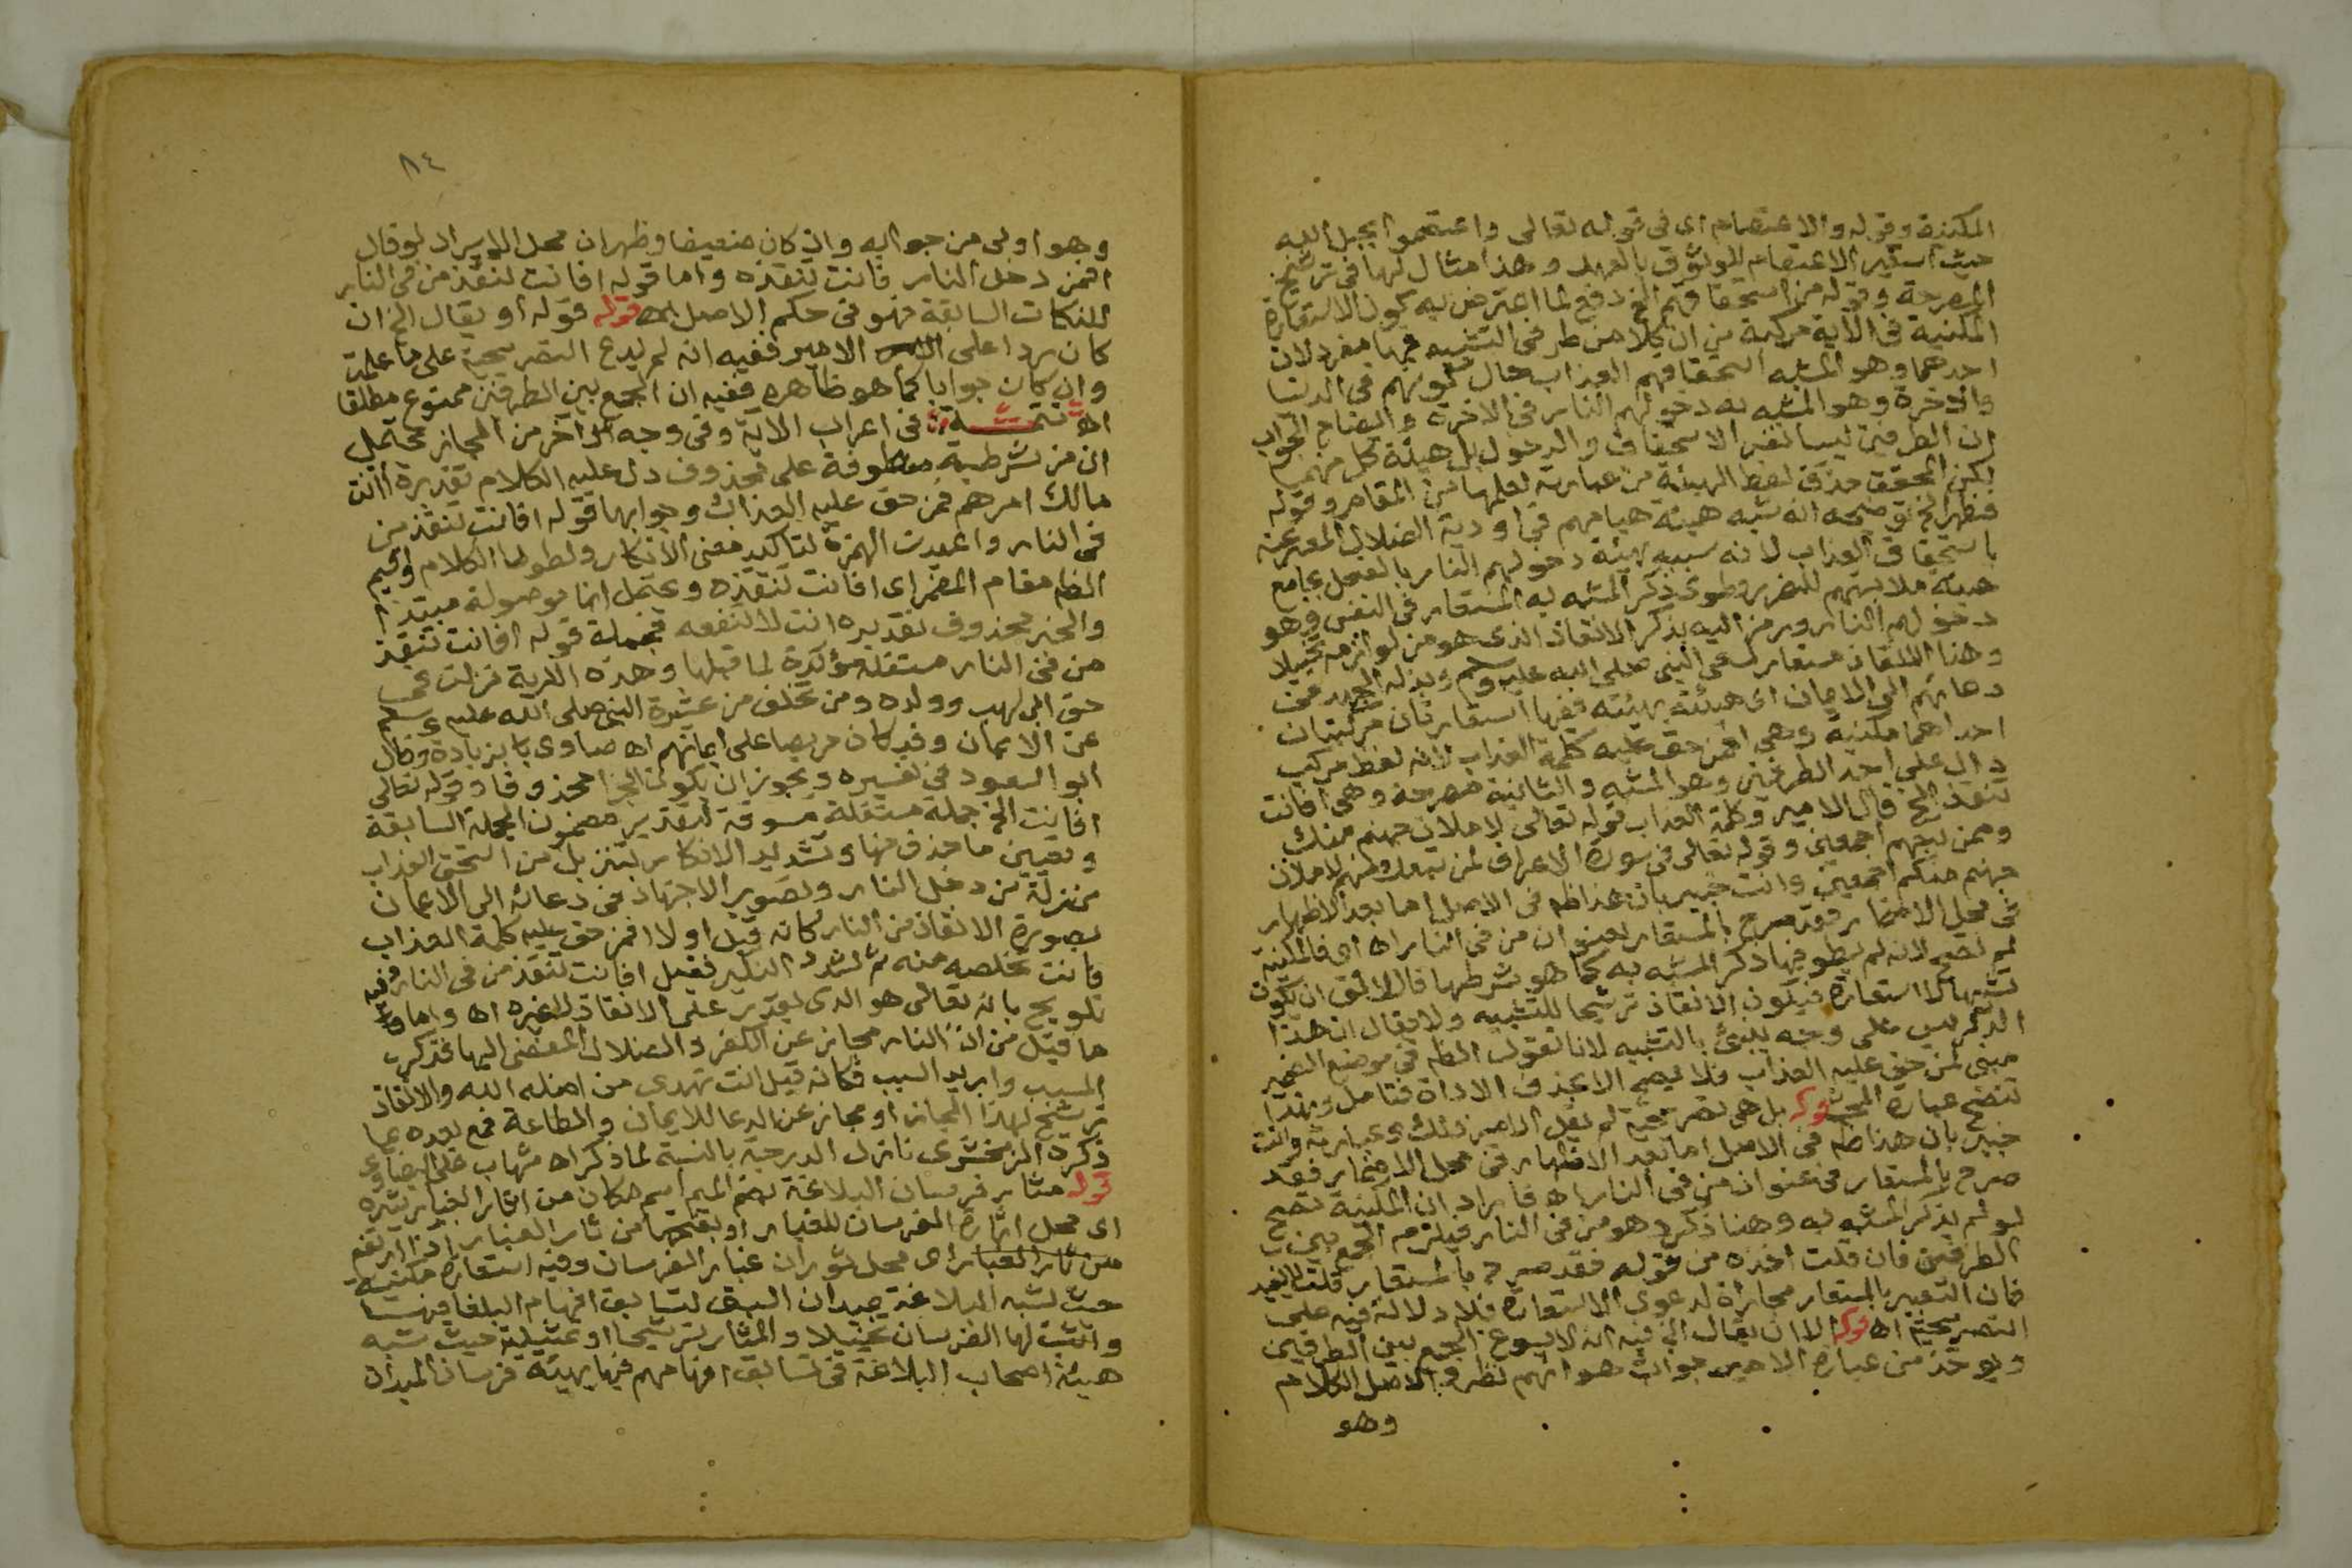 المكنية وقوله والاعتصام اى فى قوله تعالى واعتصموا بحبل الله
حيث استعير الاعتصام للوثوق بالعهد وهذا مثال لها فى ترشيح
المصرحة وقوله من استحقاقهم الخ دفع لما اعترض به كون الاستعارة
المكنية فى الآية مركبة من ان كلا من طرفى التشبيه فيها مفرد لان
احدهما وهو المشبه استحقاقهم العذاب حال كونهم فى الدنيا
والآخر وهو المشبه به دخولهم النار فى الآخرة وايضاح الجواب
ان الطرفين ليسا نفس الاستحقاق والدخول بل هيئة كل منهما
لكن المحقق حذف لفظ الهيئة من عبارته لعلمها من المقام وقوله
فظهر الخ توضيحه انه شبه هيئة هيامهم فى اودية الضلال المعبر عنه
باستحقاق العذاب لانه سببه بهيئة دخولهم النار بالفعل بجامع
هيئة ملابستهم للضرر وطوى ذكر المشبه به المستعار فى النفس وهو
دخولهم النار ورمز اليه بذكر الانقاذ الذى هو من لوازمه تخييلا
وهنا الانقاذ مستعار لسعى النبى صلى الله عليه وسلم وبذله الجهد فى
دعائهم الى الايمان اى هيئته بهيئته ففيها استعارتان مركبتان
احداهما مكنية وهى افمن حق عليه كلمة العذاب لانه لفظ مركب
دال على احد الطرفين وهو المشبه والثانية مصرحة وهى افانت
تنقذ الخ قال الامير وكلمة العذاب قوله تعالى لاملان جهنم منك
وممن تبعهم اجمعين وقوله تعالى فى سورة الاعراف لمن تبعك منهم لاملان
جهنم منكم اجمعين وانت خبير بان هذا ظه فى الاصل اما بعد الاظهار
فى محل الاضمار فقد صرح بالمستعار بعنوان من فى النار اه اى فالمكنية
لم تصح لانه لم يطو فيها ذكر المشبه به كما هو شرطها قال الاليق ان يكون
تشبيها لا استعارة فيكون الانقاذ ترشيحا للتشبيه ولا يقال ان هذا
الذكر ليس على وجه ينبئ بالتشبيه لانا نقول الظه فى موضع الضمير
مبنى لمن حق عليه العذاب فلا يصح الا بحذف الاداة فتامل وبهذا
تتضح عبارة المحشى قوله بل هى تصريحية لم يقل الامير ذلك وعبارته وانت
خبير بان هذا ظه فى الاصل اما بعد الاظهار فى محل الاضمار فقد
صرح بالمستعار فى عنوان من فى النار اه فايراد ان المكنية تصح
لو لم يذكر المشبه به وهنا ذكر وهو من فى النار فيلزم الجمع بين
الطرفين فان قلت اخذه من قوله فقد صرح بالمستعار قلت لا يفيد
فان التعبير بالمستعار مجاراة لدعوى الاستعارة فلا دلالة فيه على
التصريحية اه قوله الا ان يقال الخ فيه انه لا يسوغ الجمع بين الطرفين
ويوخذ من عبارة الامير جواب هو انهم نظروا لاصل الكلام
وهو
٨٤
وهو اولى من جوابه وان كان ضعيفا وظهر ان محل الايراد لو قال
افمن دخل النار فانت تنقذه واما قوله افانت تنقذ من فى النار
للنكات السابقة فهو فى حكم الاصل اه قوله قوله او يقال الخ ان
كان ردا على الامير ففيه انه لم يدع التصريحية على ما علمت
وان كان جوابا كما هو ظاهره ففيه ان الجمع بين الطرفين ممنوع مطلقا
اه تتمة فى اعراب الآية وفى وجه آخر من المجاز محتمل
ان من شرطية معطوفة على محذوف دل عليه الكلام تقديره اانت
مالك امرهم فمن حق عليه العذاب وجوابها قوله افانت تنقذ من
فى النار واعيدت الهمزة لتاكيد معنى الانكار ولطول الكلام واقيم
الظاهر مقام المضمر اى افانت تنقذه ويحتمل انها موصولة مبتدا
والخبر محذوف تقديره انت لا تنفعه فجملة قوله افانت تنقذ
من فى النار مستقلة مؤكدة لما قبلها وهذه الآية نزلت فى
حق ابى لهب وولده ومن تخلف من عشيرة النبى صلى الله عليه وسلم
عن الايمان وقد كان حريصا على ايمانهم اه صاوى بزيادة وقال
ابو السعود فى تفسيره ويجوز ان يكون الجزا محذوفا وقوله تعالى
افانت الخ جملة مستقلة مسوقة لتقدير مضمون الجملة السابقة
وتعيين ما حذف منها وتشديد الانكار بتنزيل من استحق العذاب
منزلة من دخل النار وتصوير الاجتهاد فى دعائه الى الايمان
بصورة الانقاذ من النار كانه قيل اولا افمن حق عليه كلمة العذاب
فانت تخلصه منه ثم شدد النكير فقيل افانت تنقذ من فى النار وفيه
تلويح بانه تعالى هو الذى يقدر على الانقاذ لا غيره اه واما
ما قيل من ان النار مجاز عن الكفر والضلال المفضى اليها فذكر
المسبب واريد السبب فكانه قيل انت تهدى من اضله الله والانقاذ
ترشيح لهذا المجاز او مجاز عن الدعا للايمان والطاعة فمع بعده عما
ذكره الزمخشرى نازل الدرجة بالنسبة لما ذكر اه شهاب على البيضاوى
قوله مثار فرسان البلاغة بضم الميم اسم مكان من اثار الغبار يثيره
اى محل اثارة الفرسان للغبار او بفتحها من ثار الغبار اذا ارتفع
من ثار الغبار اى محل ثوران غبار الفرسان وفيه استعارة مكنية
حيث شبه البلاغة بميدان السبق لتسابق افهام البلغا فيها
واثبت لها الفرسان تخييلا والمثار ترشيحا او تمثيلية حيث شبه
هيئة اصحاب البلاغة فى تسابق افهامهم فيها بهيئة فرسان الميدان